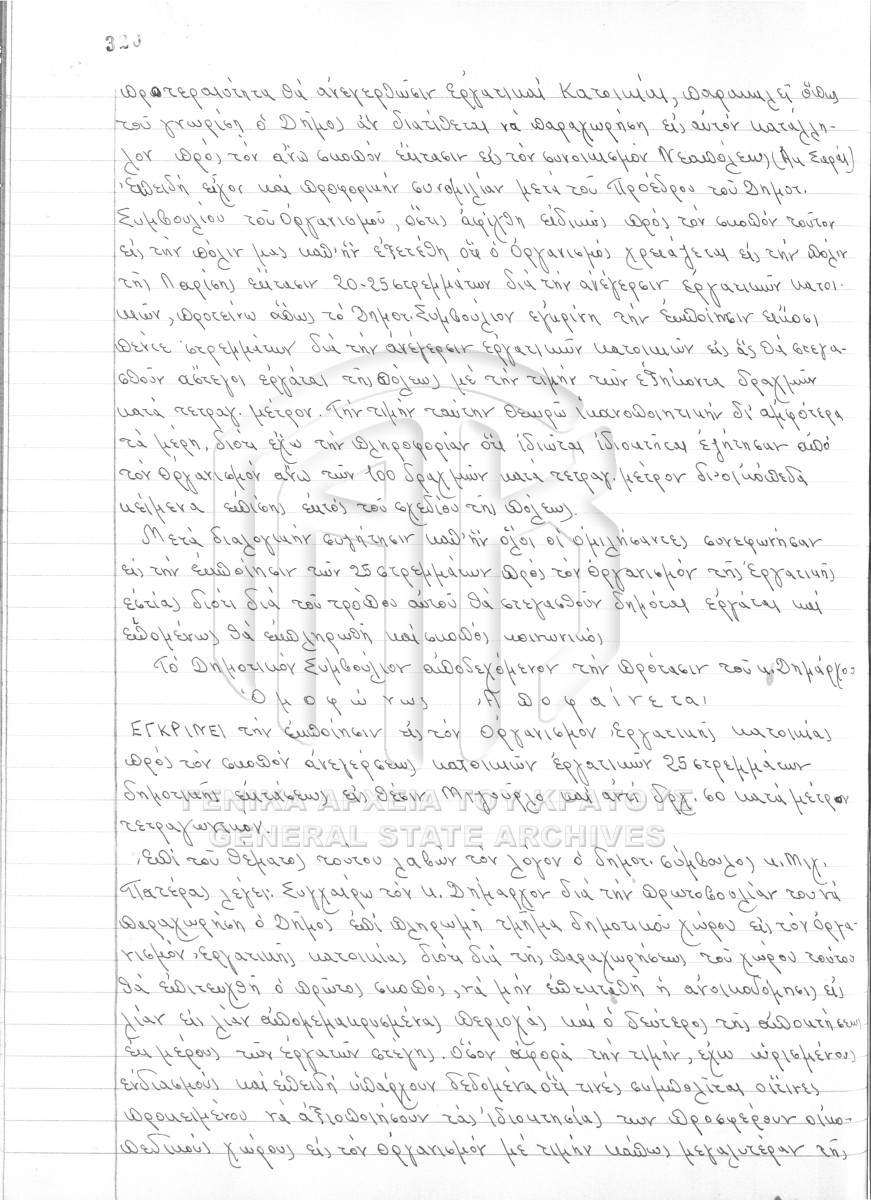 320
προτεραιότητα θά ἀνεγερθῶσιν Ἐργατικαί Κατοικίαι, παρακαλεῖ ὅπως
τοῦ γνωρίση ὁ Δῆμος ἄν διατίθεται νά παραχωρήση εἰς αὐτόν κατάλλη-
λον πρός τόν ἄνω σκοπόν ἔκτασιν εἰς τόν συνοικισμόν Νεαπόλεως (Ἀκ Σαράϊ)
Ἐπειδή εἶχον καί προφορικήν συνομιλίαν μετά τοῦ Προέδρου τοῦ Δημοτ.
Συμβουλίου τοῦ Ὀργανισμοῦ, ὅστις ἀφίχθη εἰδικῶς πρός τόν σκοπόν τοῦτον
εἰς τήν πόλιν μας καθ' ἥν ἐξετέθη ὅτι ὁ Ὀργανισμός χρειάζεται εἰς τήν πόλιν
τῆς Λαρίσης ἔκτασιν 20-25 στρεμμάτων διά τήν ἀνέγερσιν ἐργατικῶν κατοι-
κιῶν, προτείνω ὅπως τό Δημοτ. Συμβούλιον ἐγκρίνη τήν ἐκποίησιν εἴκοσι
πέντε στρεμμάτων διά τήν ἀνέγερσιν ἐργατικῶν κατοικιῶν εἰς ἅς θά στεγα-
σθοῦν ἄστεγοι ἐργάται τῆς πόλεως μέ τήν τιμήν τῶν ἑξήκοντα δραχμῶν
κατά τετραγ. μέτρον. Τήν τιμήν ταύτην θεωρῶ ἱκανοποιητικήν δι' ἀμφότερα
τά μέρη, διότι ἔχω τήν πληροφορίαν ὅτι ἰδιῶται ἰδιοκτῆται ἐζήτησαν ἀπό
τόν Ὀργανισμόν ἄνω τῶν 100 δραχμῶν κατά τετραγ. μέτρον διά οἰκόπεδα
κείμενα ἐπίσης ἐκτός τοῦ σχεδίου τῆς πόλεως.
Μετά διαλογικήν συζήτησιν καθ' ἥν ὅλοι οἱ ὁμιλήσαντες συνεφώνησαν
εἰς τήν ἐκποίησιν τῶν 25 στρεμμάτων πρός τόν Ὀργανισμόν τῆς Ἐργατικῆς
Ἑστίας διότι διά τοῦ τρόπου αὐτοῦ θά στεγασθοῦν δημόται ἐργάται καί
ἑπομένως θά ἐκπληρωθῆ καί σκοπός κοινωνικός
Τό Δημοτικόν Συμβούλιον ἀποδεχόμενον τήν πρότασιν τοῦ κ. Δημάρχου
Ὁμοφώνως Ἀποφαίνεται
ΕΓΚΡΙΝΕΙ τήν ἐκποίησιν εἰς τόν Ὀργανισμόν Ἐργατικῆς κατοικίας
πρός τόν σκοπόν ἀνεγέρσεως κατοικιῶν ἐργατικῶν 25 στρεμμάτων
δημοτικῆς ἐκτάσεως εἰς θέσιν Μπγούρλα καί ἀντί δρχ. 60 κατά μέτρον
τετραγωνικόν.
Ἐπί τοῦ θέματος τούτου λαβών τόν λόγον ὁ δημοτ. σύμβουλος κ. Μιχ.
Πατέρας λέγει: Συγχαίρω τόν κ. Δήμαρχον διά τήν πρωτοβουλίαν του νά
παραχωρήση ὁ Δῆμος ἐπί πληρωμῆ τμῆμα δημοτικοῦ χώρου εἰς τόν Ὀργα-
νισμόν Ἐργατικῆς κατοικίας διότι διά τῆς παραχωρήσεως τοῦ χώρου τούτου
θά ἐπιτευχθῆ ὁ πρῶτος σκοπός, νά μήν ἐπεκταθῆ ἡ ἀνοικοδόμησις εἰς
λίαν εἰς λίαν ἀπομεμακρυσμένας περιοχάς καί ὁ δεύτερος τῆς ἀποκτήσεως
ἐκ μέρους τῶν ἐργατῶν στέγης. Ὅσον ἀφορᾶ τήν τιμήν, ἔχω ὡρισμένους
ἐνδιασμούς καί ἐπειδή ὑπάρχουν δεδομένα ὅτι τινές συμπολῖται οἵτινες
προκειμένου νά ἀξιοποιήσουν τάς ἰδιοκτησίας των προσφέρουν οἰκο-
πεδικούς χώρους εἰς τόν Ὀργανισμόν μέ τιμήν κάπως μεγαλυτέραν τῆς
ΓΕΝΙΚΑ ΑΡΧΕΙΑ ΤΟΥ ΚΡΑΤΟΥΣ
GENERAL STATE ARCHIVES